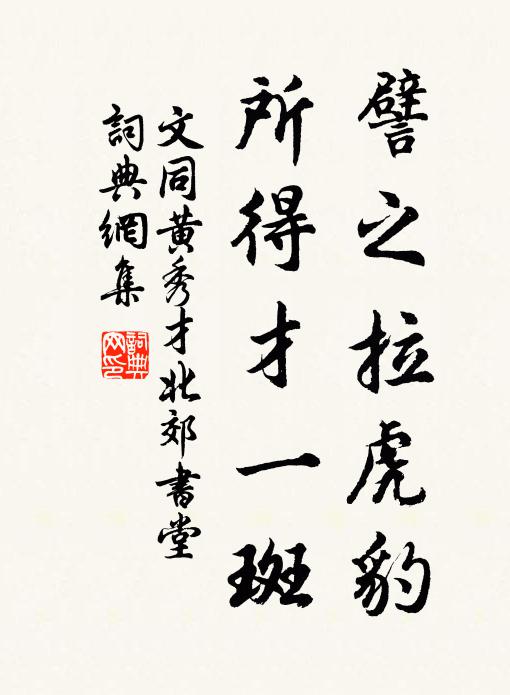 譬之拉虎豹
所得才一斑
文同黄秀才北郊書堂
詞典網集
詞典網印